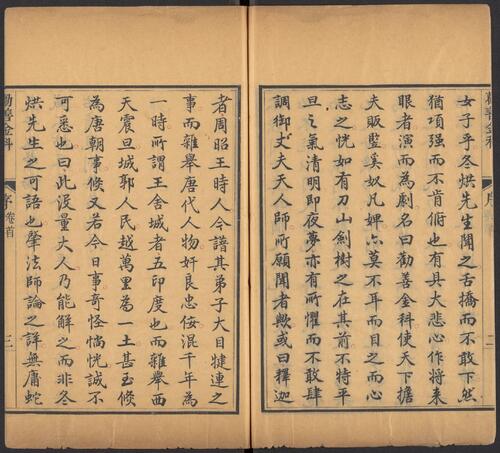 勸善金科
序
二
女子乎冬烘先生聞之舌撟而不敢下然
猶項强而不肯俯也有具大悲心作將來
眼者演而為劇名曰勸善金科使天下擔
夫販豎奚奴凡婢亦莫不耳而目之而心
志之恍如有刀山劍樹之在其前不特平
旦之氣清明即夜夢亦有所懼而不敢肆
調御丈夫天人師所願聞者歟或曰釋迦
者周昭王時人今譜其弟子大目犍連之
事而雜舉唐代人物奸良忠佞混千年為
一時所謂王舍城者五印度也而雜舉西
天震旦城郭人民越萬里為一土甚至倏
為唐朝事倏又若今日事奇怪惝恍誠不
可悉也曰此沒量大人乃能解之而非冬
烘先生之可語也肇法師論之詳無庸蛇
勸善金科
序 卷首
三